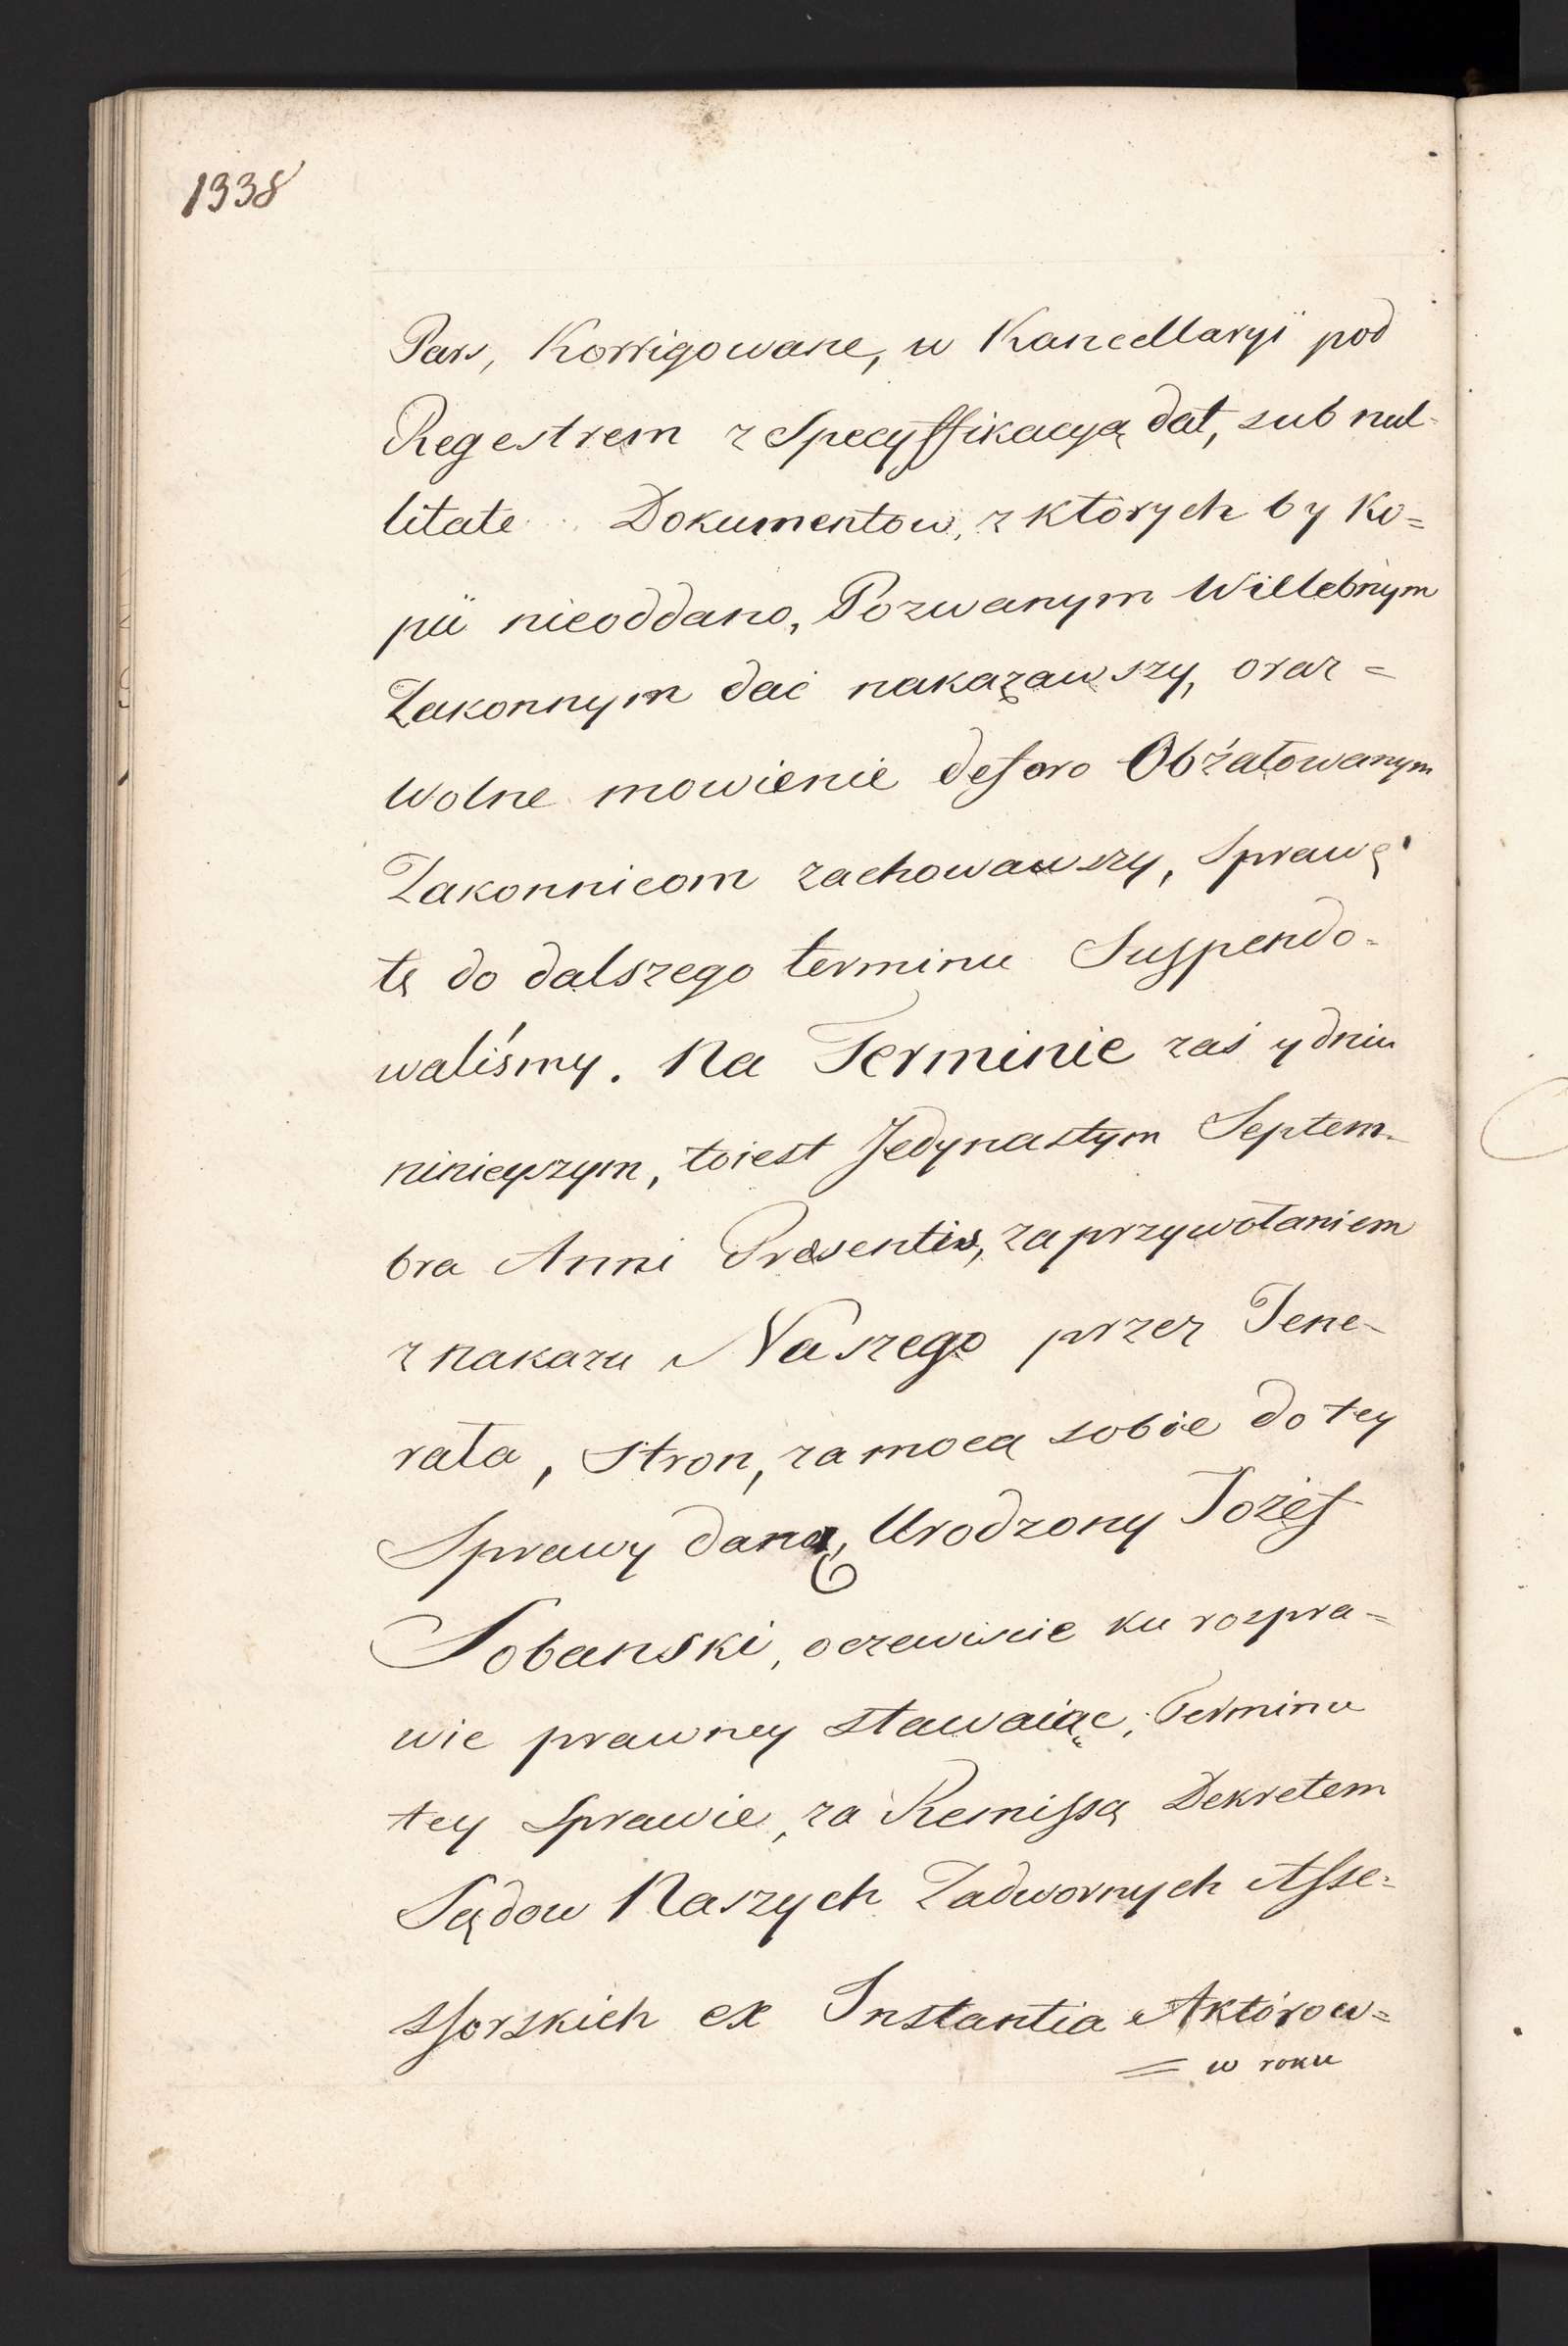 1338
Pars, Korrigowane, w Kancellaryi pod
Regestrem z Specyffikacyą dat, sub nul-
litate Dokumentow, z ktorych by Ko=
pii nieoddano, Pozwanym Willebnym
Zakonnym dać nakazawszy, oraz=
wolne mowienie deforo Obżałowanym
Zakonnicom zachowawszy, Sprawę
tę do dalszego terminu Suspendo=
waliśmy. Na Terminie zaś y dniu
ninieyszym, toiest Jedynastym Septem-
bra Anni Presentis, za przywołaniem
z nakazu Naszego przez Jene-
rała, Stron, za mocą sobie do tey
Sprawy daną, Urodzony Jozef
Sobanski, oczewiscie ku rozpra=
wie prawney stawaiąc, Terminu
tey Sprawie, za Remissą Dekretem
Sądow Naszych Zadwornych Asse=
ssorskich ex Instantia Aktórow=
= w roku